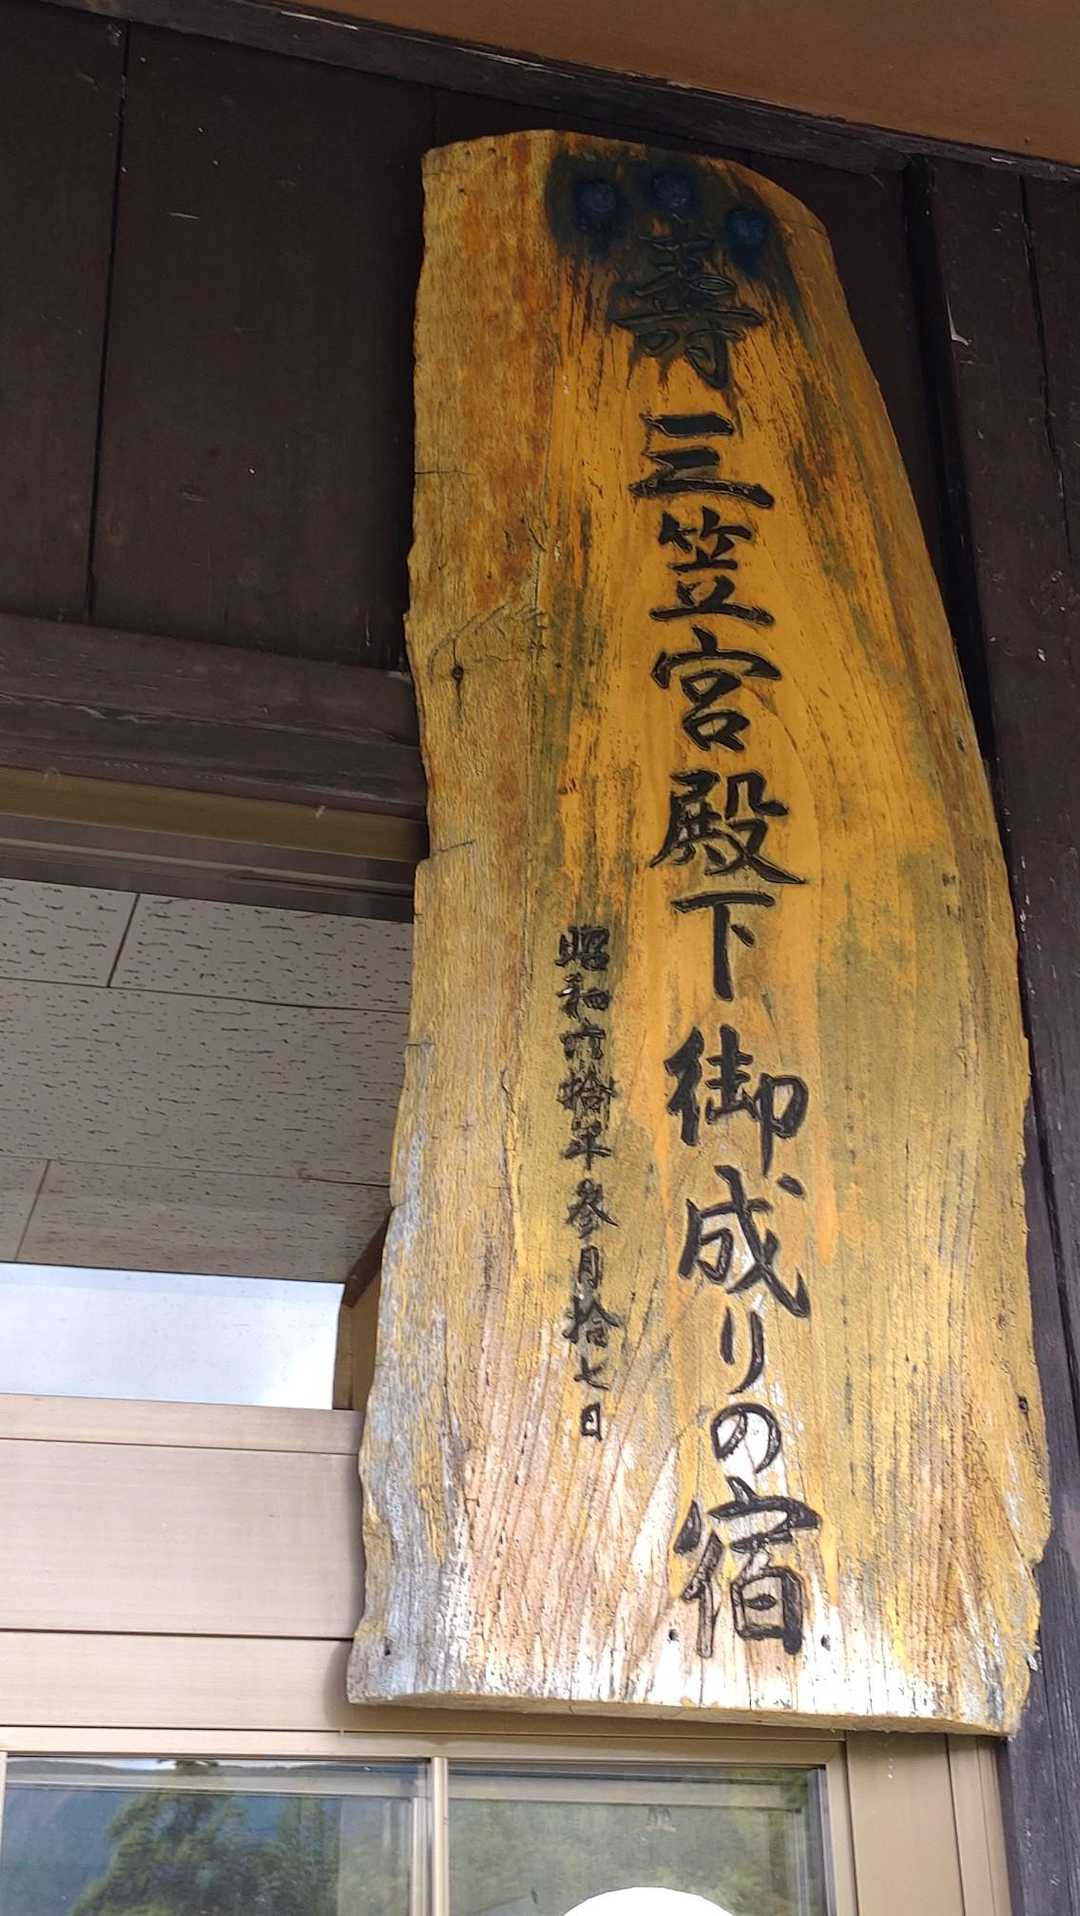 壽 三笠宮殿下 御成りの宿
昭和六拾年参月拾七日